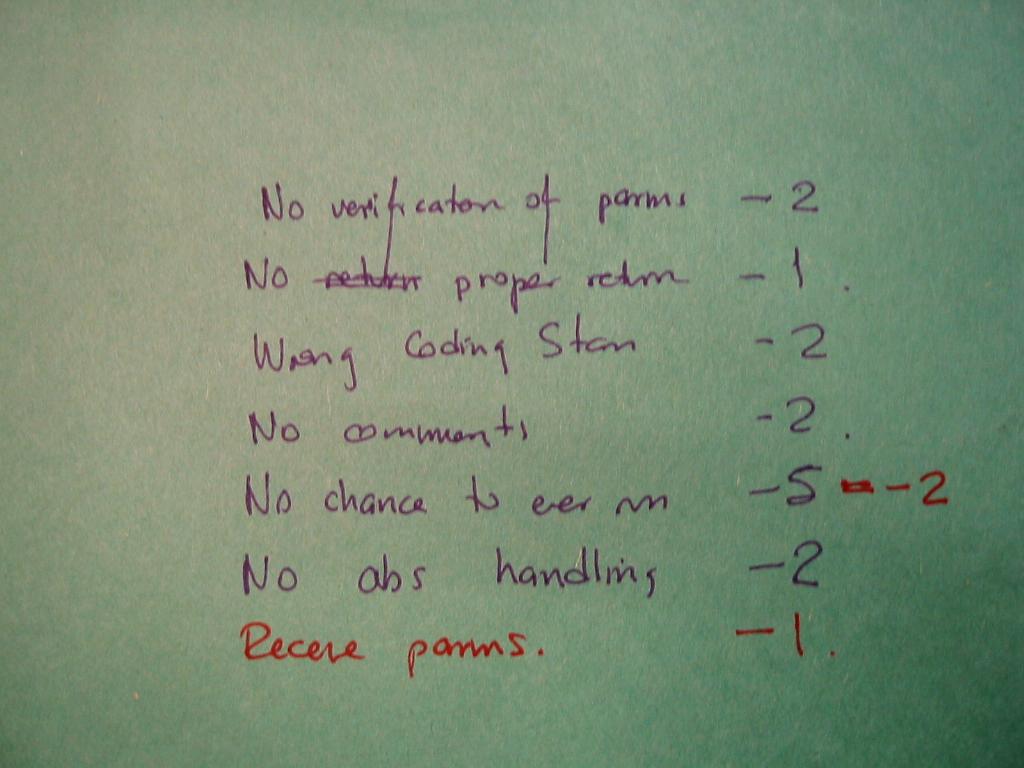 No verification of parms - 2
No return proper return - 1.
Wrong Coding Stan - 2
No comments - 2.
No chance to ever run - 5 = - 2
No abs handling - 2
Receve parms. - 1.